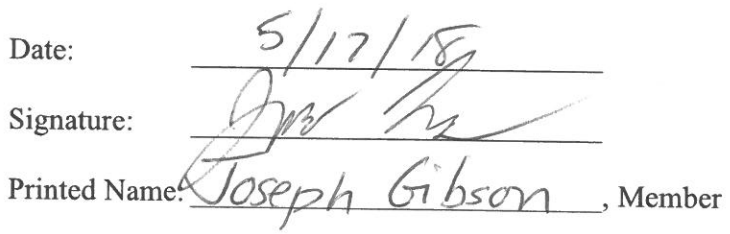 Date: 5/17/18
Signature:
Printed Name: Joseph Gibson, Member